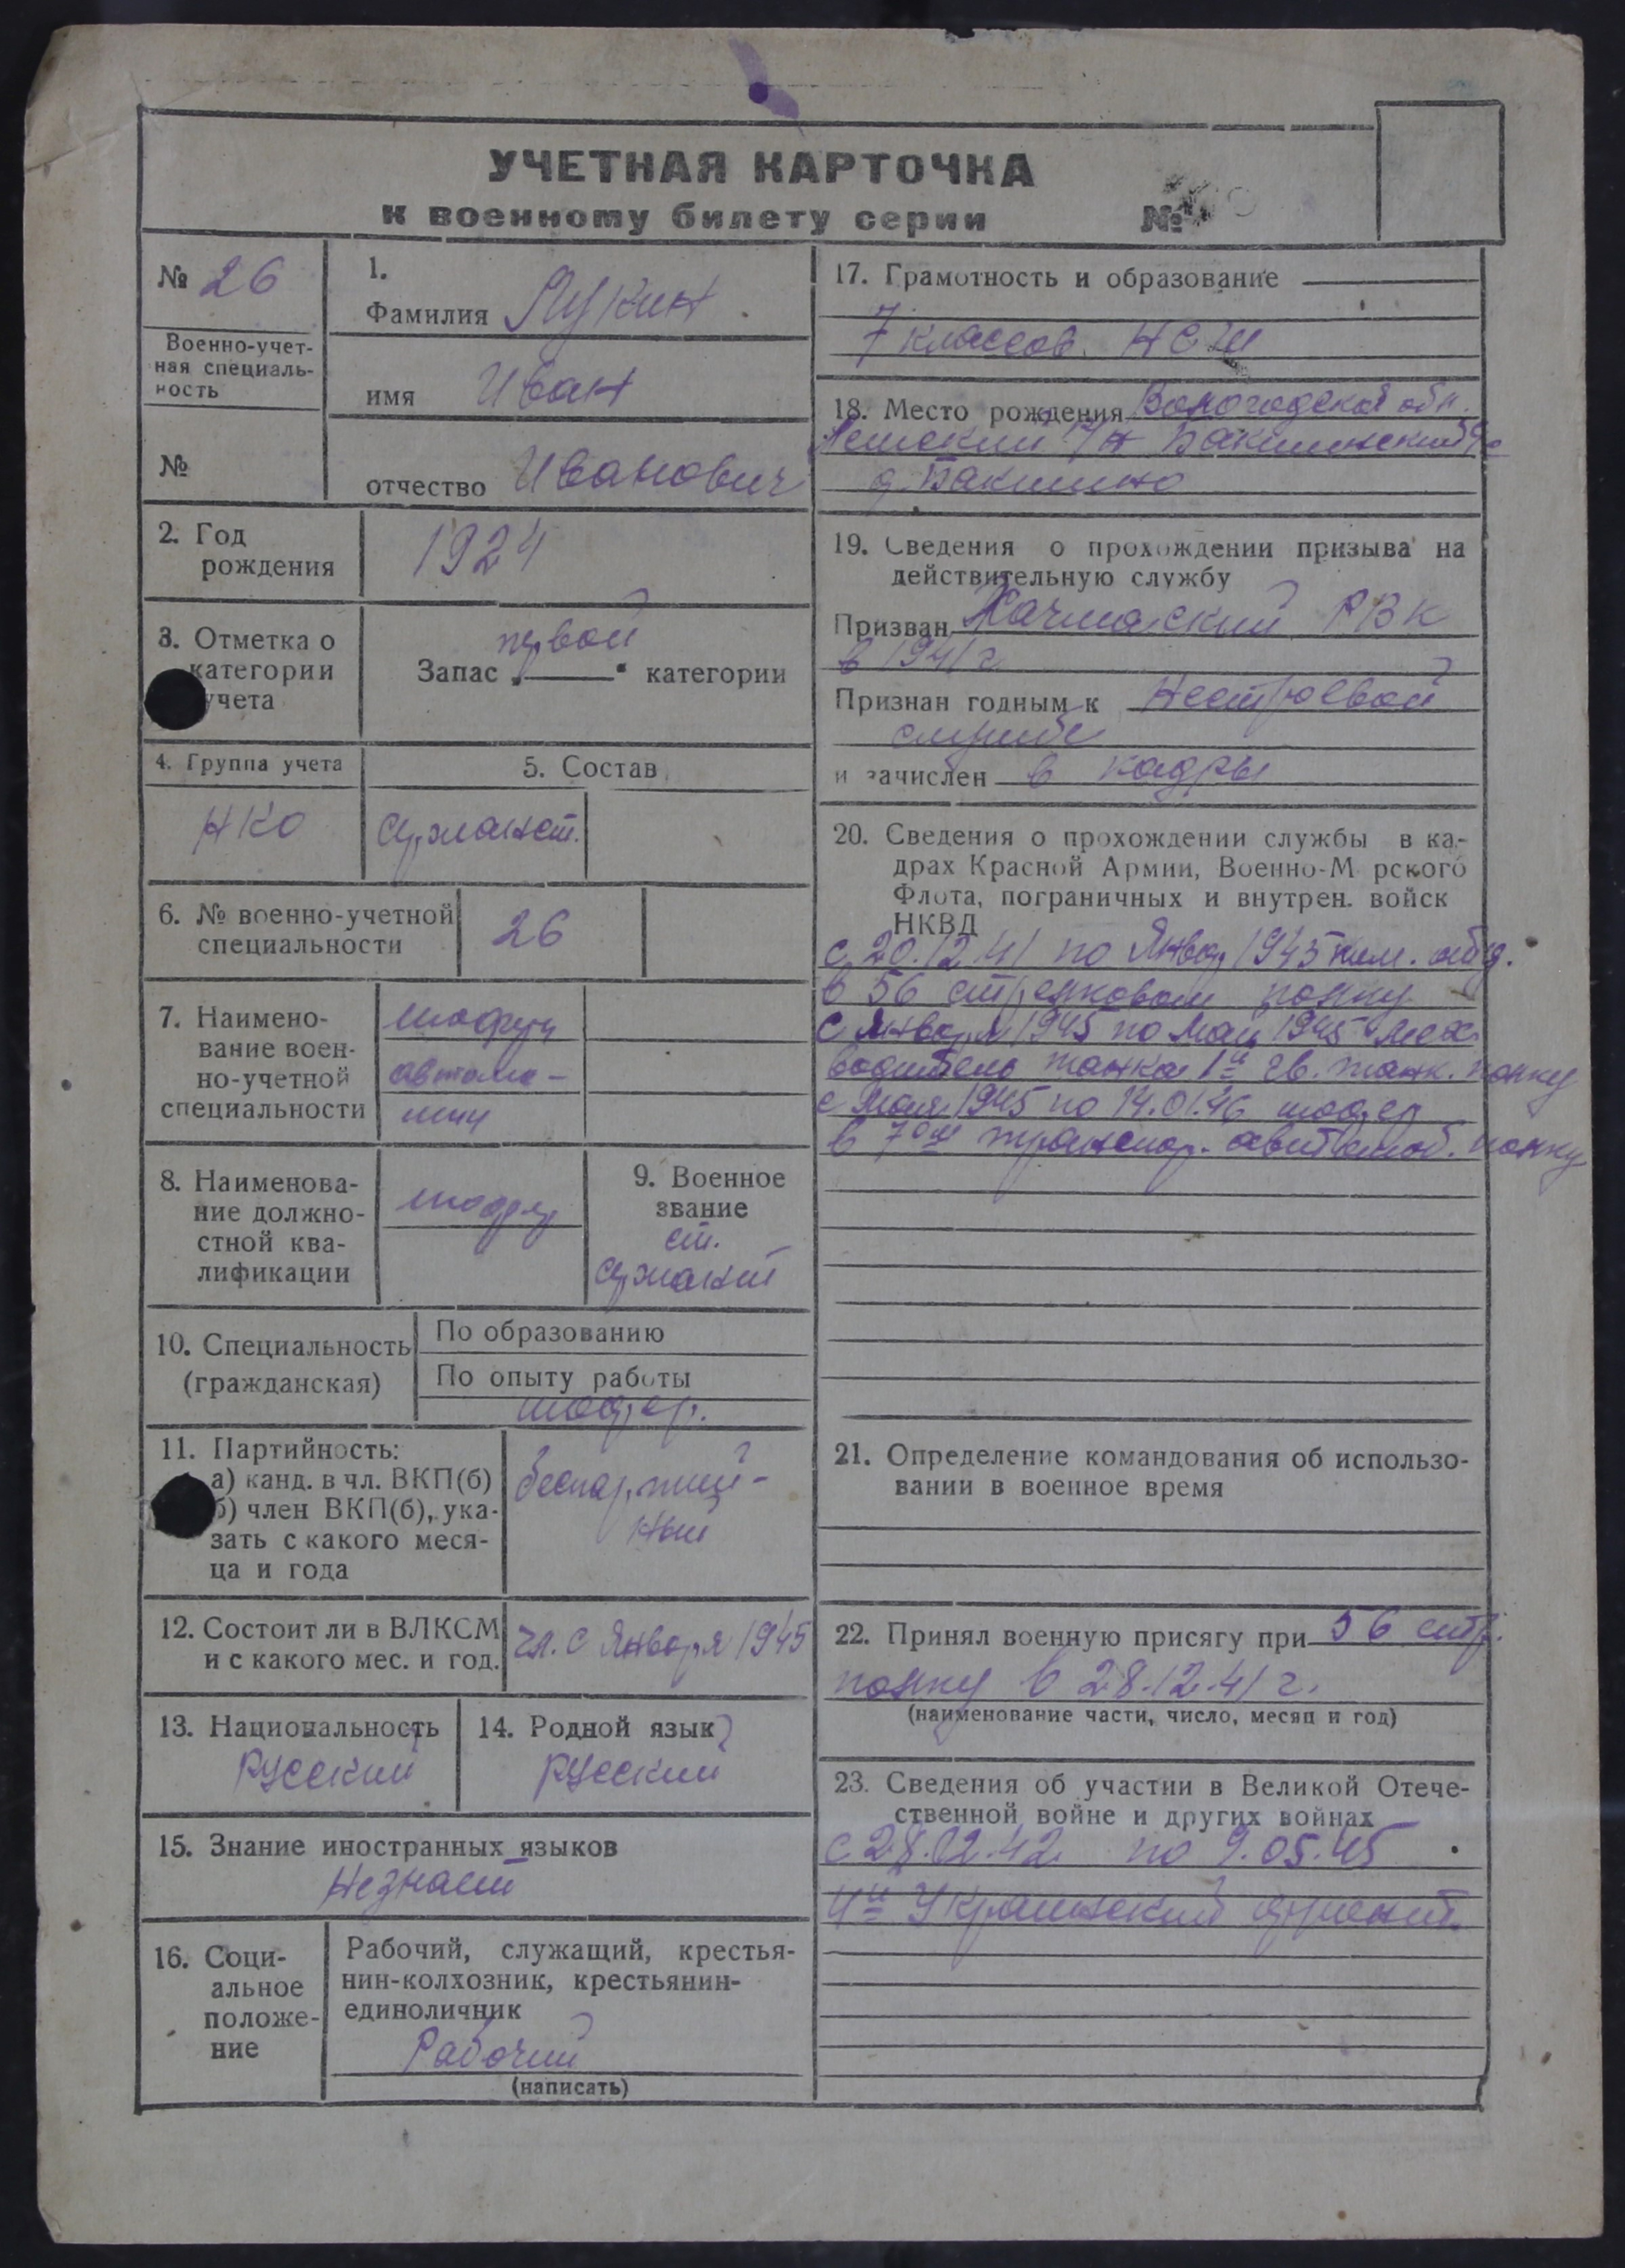 УЧЕТНАЯ КАРТОЧКА
к военному билету серии №
№ 26
Военно-учет-
ная специаль-
ность
№
1.
Фамилия Лукин
имя Иван
отчество Иванович
2. Год
рождения
1924
3. Отметка о
категории
учета
первой
Запас „ " категории
4. Группа учета
НКО
5. Состав
сержанст.
6. № военно-учетной
специальности
26
7. Наимено-
вание воен-
но-учетной
специальности
шофер
автома-
шин
8. Наименова-
ние должно-
стной ква-
лификации
шофер
9. Военное
звание
ст.
сержант
10. Специальность
(гражданская)
По образованию
По опыту работы
шофер.
11. Партийность:
а) канд. в чл. ВКП(б)
б) член ВКП(б), ука-
зать с какого меся-
ца и года
беспартий-
ный
12. Состоит ли в ВЛКСМ
и с какого мес. и год.
чл. с Января 1945
13. Национальность
Русский
14. Родной язык
Русский
15. Знание иностранных языков
Незнает
16. Соци-
альное
положе-
ние
Рабочий, служащий, крестья-
нин-колхозник, крестьянин-
единоличник
Рабочий
(написать)
17. Грамотность и образование
7 классов. НСШ
18. Место рождения Вологодской обл.
р/н Бакшинский с/с
д. Бакшино
19. Сведения о прохождении призыва на
действительную службу
Призван РВК
в 1941 г
Признан годным к Нестроевой
службе
и зачислен в кадры
20. Сведения о прохождении службы в ка-
драх Красной Армии, Военно-М рского
Флота, пограничных и внутрен. войск
НКВД
с 20.12.41 по Январ 1945
в 56 стрелковом полку
с Января 1945 по Май 1945 мех.
водитель танка 1й гв. танк. полку
с Мая 1945 по 14.01.46 шофер
в 7ом транспор. автомоб. полку
21. Определение командования об использо-
вании в военное время
22. Принял военную присягу при 56 стр.
полку в 28.12.41 г.
(наименование части, число, месяц и год)
23. Сведения об участии в Великой Отече-
ственной войне и других войнах
с 28.02.42 по 9.05.45
4й Украинский фронт.